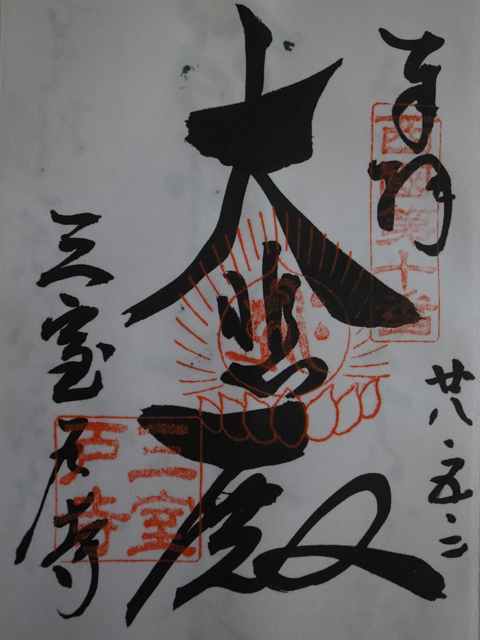 奉拝
西国第十番
廿八・五・二
大悲殿
三室戸寺
三室戸寺